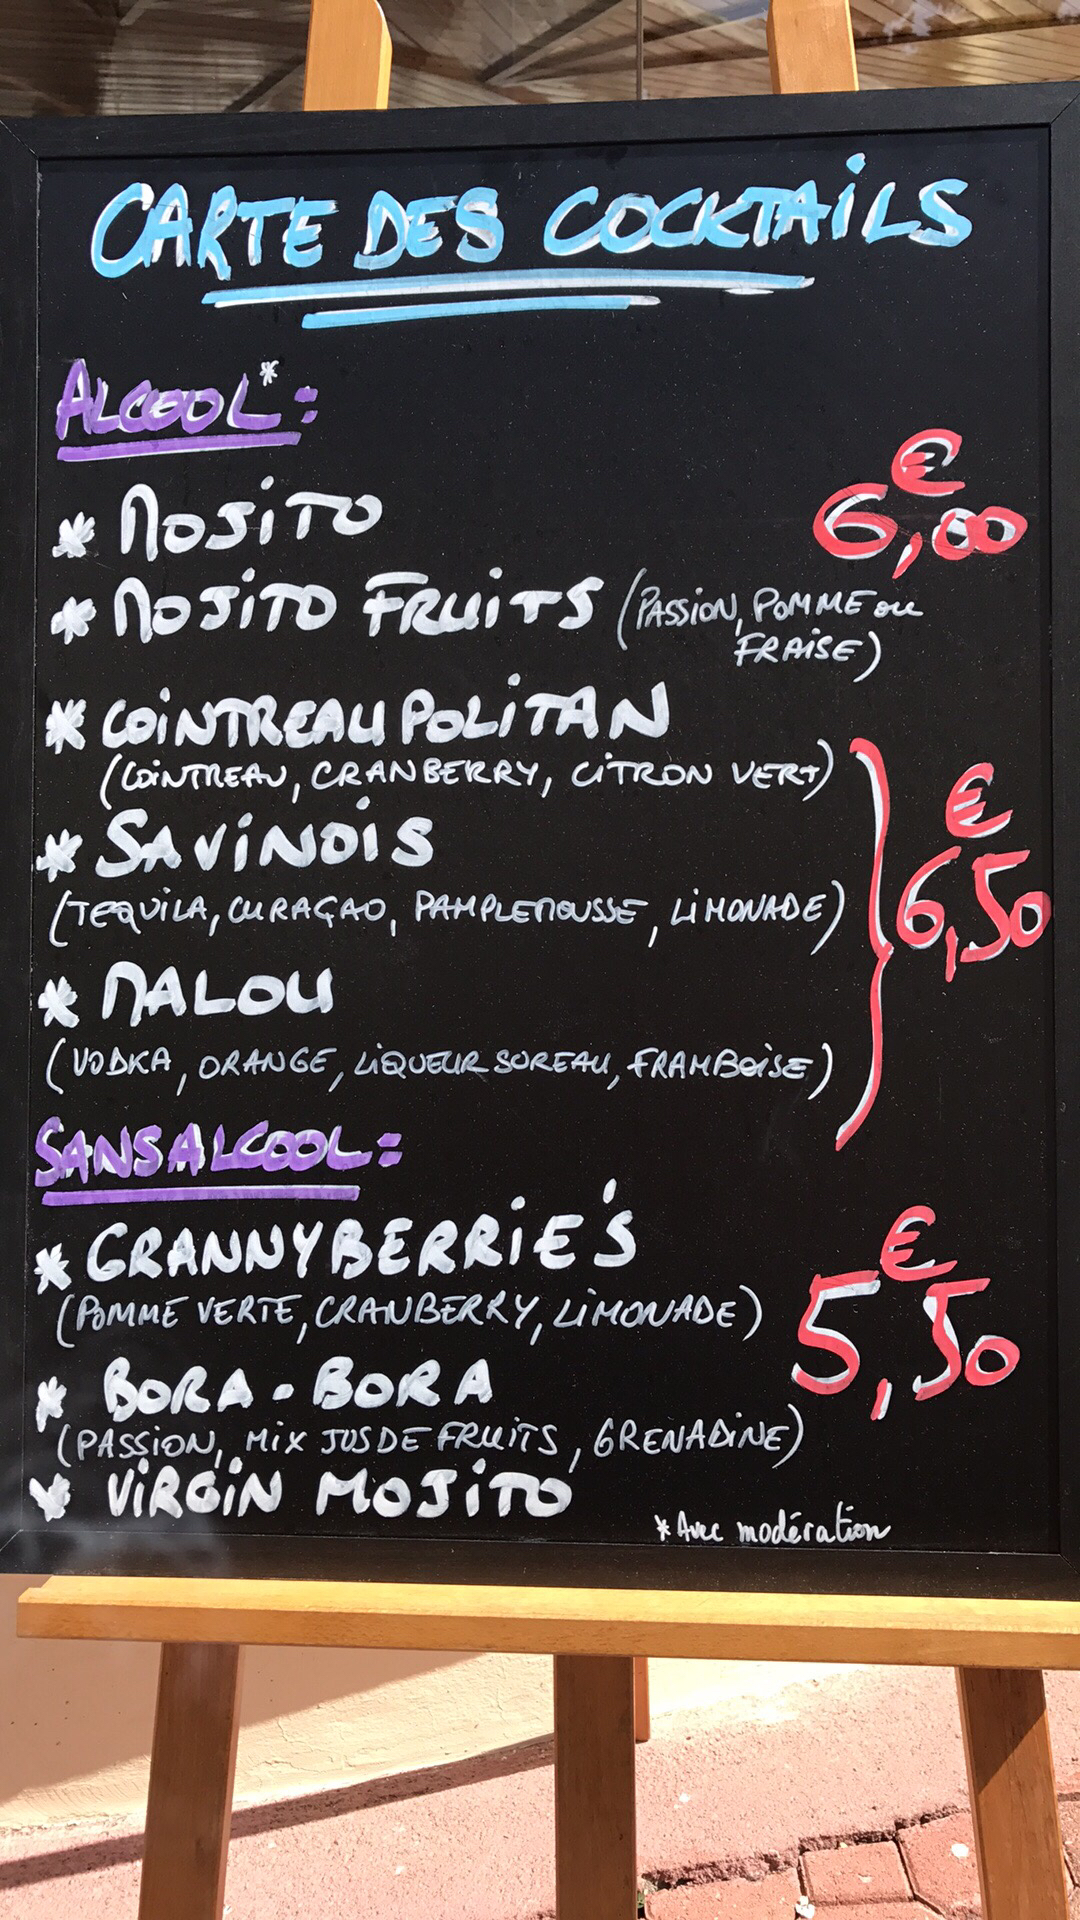 CARTE DES COCKTAILS
ALCOOL* :
* MOJITO 6,00 €
* MOJITO FRUITS (PASSION, POMME ou
FRAISE)
* COINTREAUPOLITAN
(COINTREAU, CRANBERRY, CITRON VERT)
* SAVINOIS
(TEQUILA, CURAÇAO, PAMPLEMOUSSE, LIMONADE)
6,50 €
* MALOU
(VODKA, ORANGE, LIQUEUR SUREAU, FRAMBOISE)
SANS ALCOOL :
* GRANNYBERRIE'S
(POMME VERTE, CRANBERRY, LIMONADE)
5,50 €
* BORA-BORA
(PASSION, MIX JUS DE FRUITS, GRENADINE)
* VIRGIN MOJITO
* Avec modération